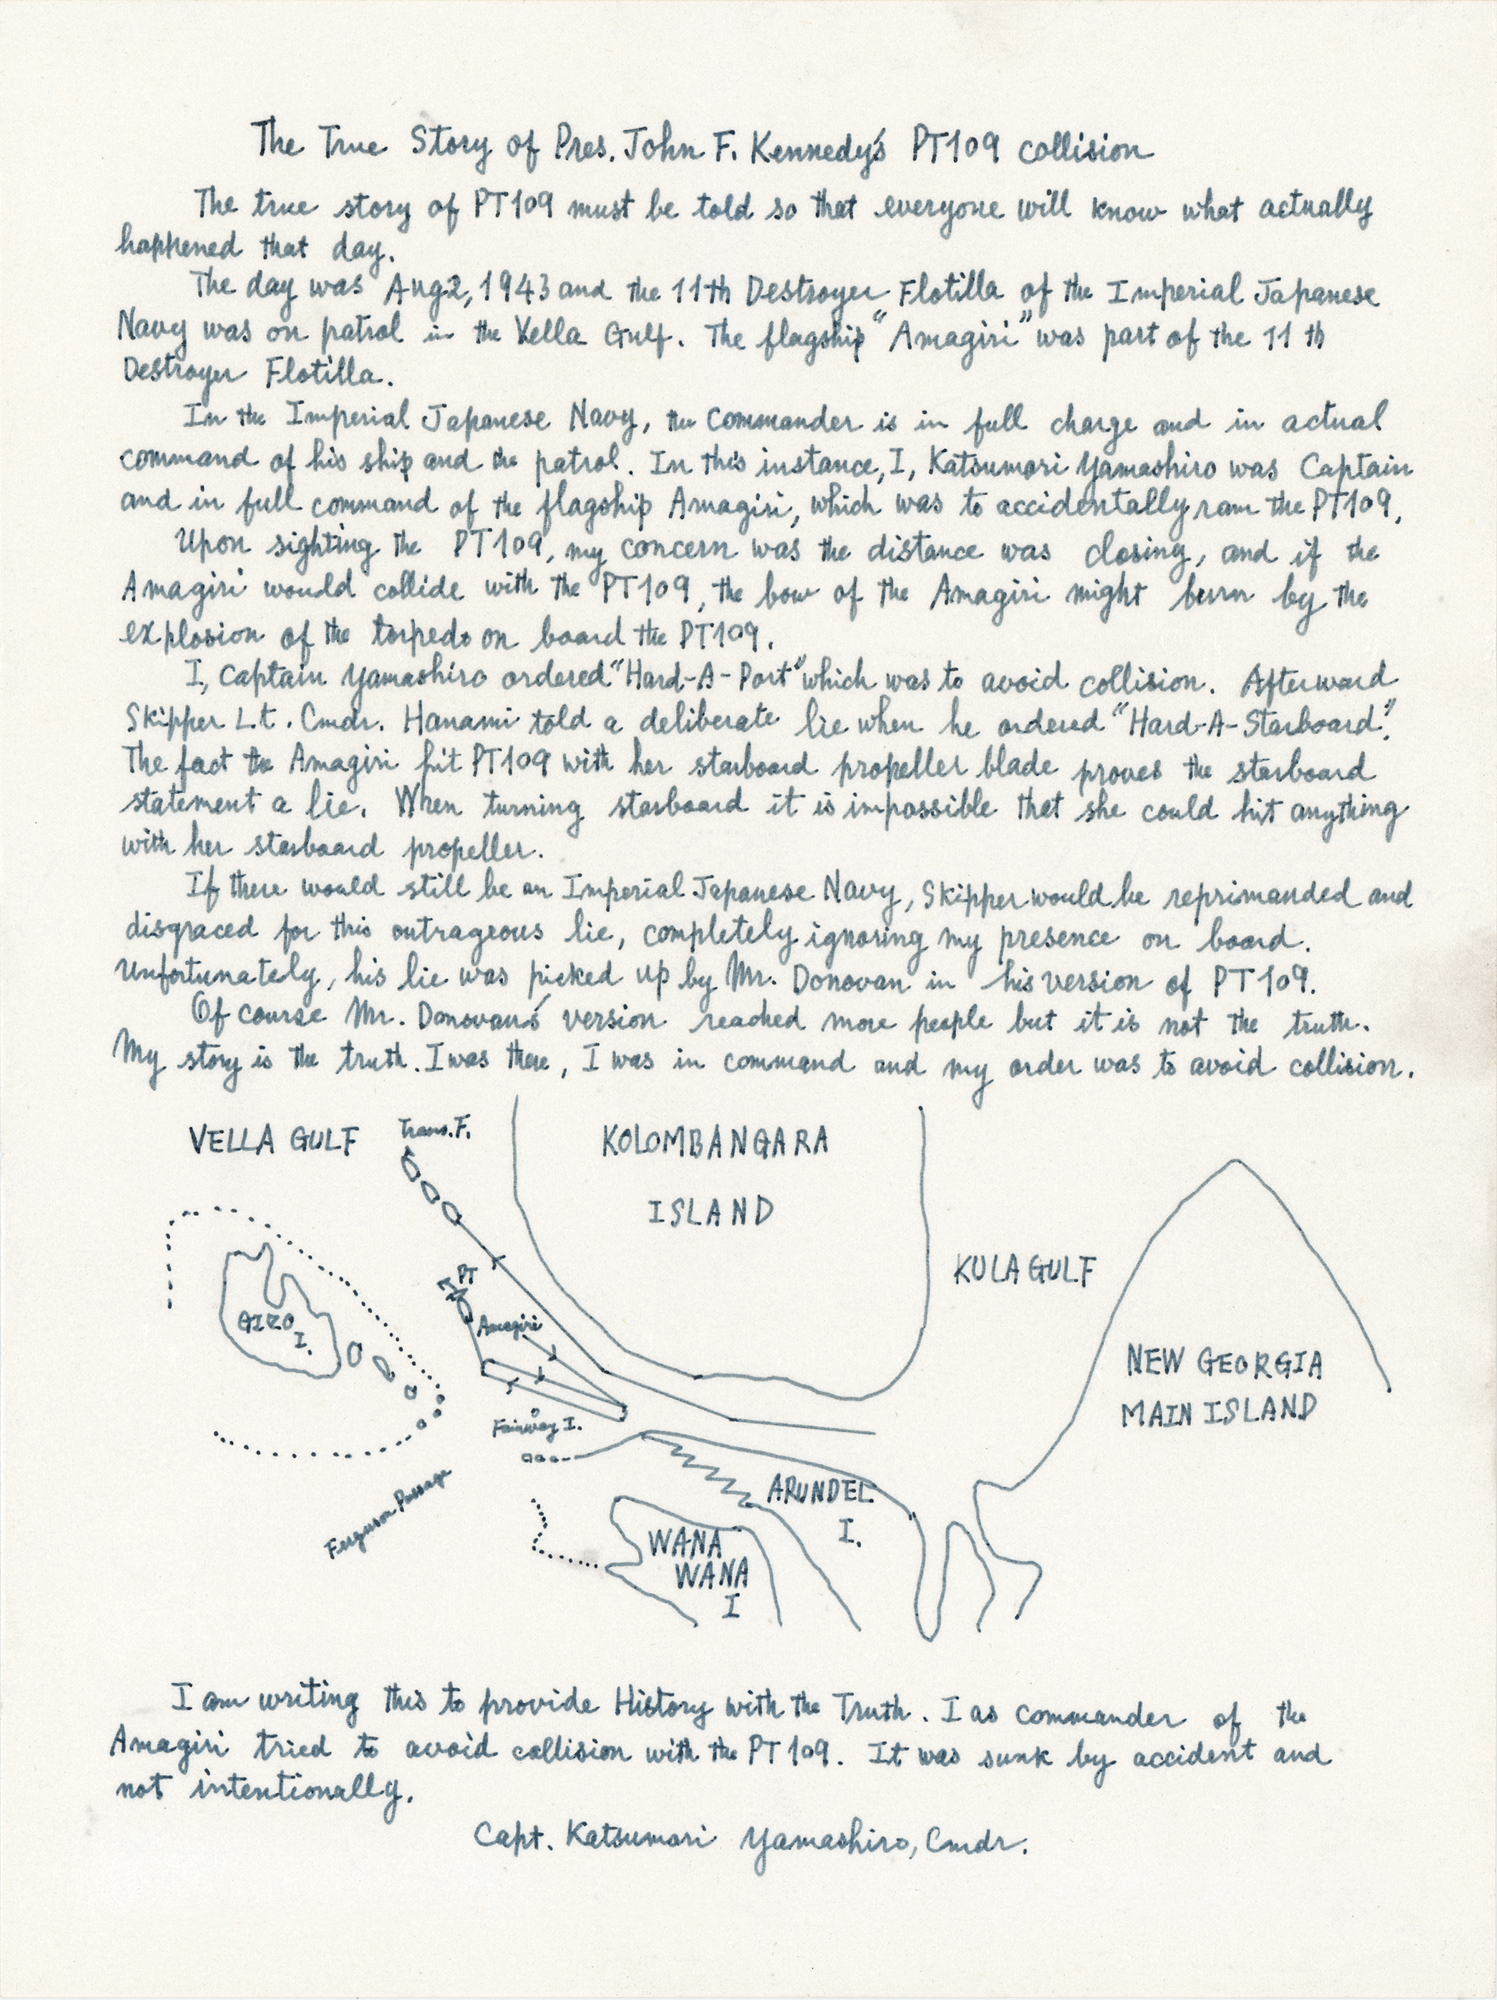 The True Story of Pres. John F. Kennedy's PT109 collision
The true story of PT109 must be told so that everyone will know what actually
happened that day.
The day was Aug2, 1943 and the 11th Destroyer Flotilla of the Imperial Japanese
Navy was on patrol in the Vella Gulf. The flagship "Amagiri" was part of the 11 th
Destroyer Flotilla.
In the Imperial Japanese Navy, the commander is in full charge and in actual
command of his ship and the patrol. In this instance, I, Katsumori Yamashiro was Captain
and in full command of the flagship Amagiri, which was to accidentally ram the PT109.
Upon sighting the PT109, my concern was the distance was closing, and if the
Amagiri would collide with the PT109, the bow of the Amagiri might burn by the
explosion of the torpedo on board the PT109.
I, Captain Yamashiro ordered "Hard-A-Port" which was to avoid collision. Afterward
Skipper Lt. Cmdr. Hanami told a deliberate lie when he ordered "Hard-A-Starboard".
The fact the Amagiri hit PT109 with her starboard propeller blade proves the starboard
statement a lie. When turning starboard it is impossible that she could hit anything
with her starboard propeller.
If there would still be an Imperial Japanese Navy, Skipper would be reprimanded and
disgraced for this outrageous lie, completely ignoring my presence on board.
Unfortunately, his lie was picked up by Mr. Donovan in his version of PT109.
Of course Mr. Donovan's version reached more people but it is not the truth.
My story is the truth. I was there, I was in command and my order was to avoid collision.
VELLA GULF
Trans. F.
KOLOMBANGARA
ISLAND
KULA GULF
PT
GIZO
I.
Amagiri
NEW GEORGIA
MAIN ISLAND
Fairway I.
Ferguson Passage
ARUNDEL
I.
WANA
WANA
I
I am writing this to provide History with the Truth. I as commander of the
Amagiri tried to avoid collision with the PT109. It was sunk by accident and
not intentionally.
Capt. Katsumori Yamashiro, Cmdr.